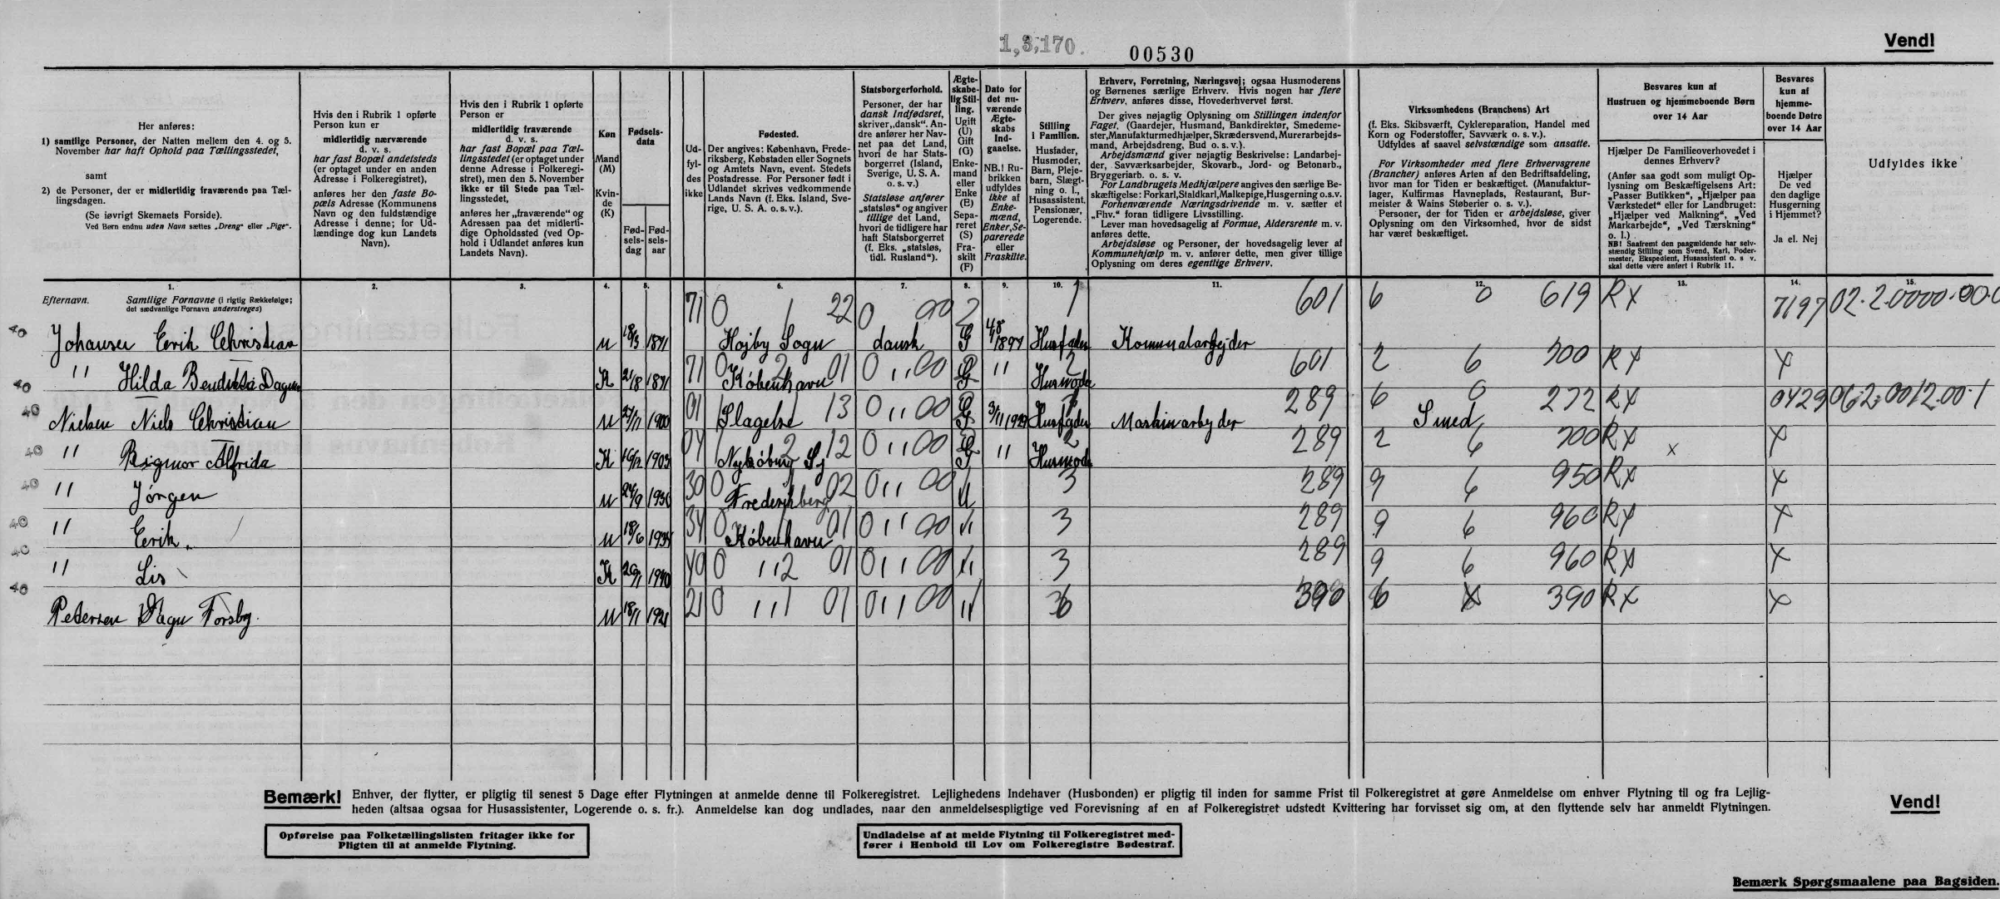 1,8,170.
00530
Vend!
Her anføres:
1) samtlige Personer, der Natten mellem den 4. og 5.
November har haft Ophold paa Tællingsstedet,
samt
2) de Personer, der er midlertidig fraværende paa Tæl-
lingsdagen.
(Se iøvrigt Skemaets Forside).
Ved Børn endnu uden Navn sættes „Dreng" eller „Pige".
Hvis den i Rubrik 1 opførte
Person kun er
midlertidig nærværende
d. v. s.
har fast Bopæl andetsteds
(er optaget under en anden
Adresse i Folkeregistret),
anføres her den faste Bo-
pæls Adresse (Kommunens
Navn og den fuldstændige
Adresse i denne; for Ud-
lændinge dog kun Landets
Navn).
Hvis den i Rubrik 1 opførte
Person er
midlertidig fraværende
d. v. s.
har fast Bopæl paa Tæl-
lingsstedet (er optaget under
denne Adresse i Folkeregi-
stret), men den 5. November
ikke er til Stede paa Tæl-
lingsstedet,
anføres her „fraværende" og
Adressen paa det midlerti-
dige Opholdssted (ved Op-
hold i Udlandet anføres kun
Landets Navn).
Køn
Mand
(M)
Kvin-
de
(K)
Fødsels-
data
Fød-
sels-
dag
Fød-
sels-
aar
Ud-
fyl-
des
ikke
Fødested.
Der angives: København, Frede-
riksberg, Købstaden eller Sognets
og Amtets Navn, event. Stedets
Postadresse. For Personer født i
Udlandet skrives vedkommende
Lands Navn (f. Eks. Island, Sve-
rige, U. S. A. o.s.v.).
Statsborgerforhold.
Personer, der har
dansk Indfødsret,
skriver „dansk". An-
dre anfører her Nav-
net paa det Land,
hvori de har Stats-
borgerret (Island,
Sverige, U. S. A.
o. s. v.).
Statsløse anfører
„statsløs" og angiver
tillige det Land,
hvori de tidligere har
haft Statsborgerret
(f. Eks. „statsløs,
tidl. Rusland").
Ægte-
skabe-
lig Stil-
ling.
Ugift
(U)
Gift
(G)
Enke-
mand
eller
Enke
(E)
Sepa-
reret
(S)
Fra-
skilt
(F)
Dato for
det nu-
værende
Ægte-
skabs
Ind-
gaaelse.
NB.! Ru-
brikken
udfyldes
ikke af
Enke-
mænd,
Enker, Se-
parerede
eller
Fraskilte.
Stilling
i Familien.
Husfader,
Husmoder,
Barn, Pleje-
barn, Slægt-
ning o. l.,
Husassistent,
Pensionær,
Logerende.
Erhverv, Forretning, Næringsvej; ogsaa Husmoderens
og Børnenes særlige Erhverv. Hvis nogen har flere
Erhverv. anføres disse, Hovederhvervet først.
Der gives nøjagtig Oplysning om Stillingen indenfor
Faget. (Gaardejer, Husmand, Bankdirektør, Smedeme-
ster, Manufakturmedhjælper, Skrædersvend, Murerarbejds-
mand, Arbejdsdreng, Bud o. s. v.).
Arbejdsmænd giver nøjagtig Beskrivelse: Landarbej-
der, Savværksarbejder, Skovarb., Jord- og Betonarb.,
Bryggeriarb. o. s. v.
For Landbrugets Medhjælpere angives den særlige Be-
skæftigelse: Forkarl, Staldkarl, Malkepige, Husgerning o.s.v.
Forhenværende Næringsdrivende m. v. sætter et
„Fhv." foran tidligere Livsstilling.
Lever man hovedsagelig af Formue, Aldersrente m. v.
anføres dette.
Arbejdsløse og Personer, der hovedsagelig lever af
Kommunehjælp m. v. anfører dette, men giver tillige
Oplysning om deres egentlige Erhverv.
Virksomhedens (Branchens) Art
(f. Eks. Skibsværft, Cyklereparation, Handel med
Korn og Foderstoffer, Savværk o. s. v.).
Udfyldes af saavel selvstændige som ansatte.
For Virksomheder med flere Erhvervsgrene
(Brancher) anføres Arten af den Bedriftsafdeling,
hvor man for Tiden er beskæftiget. (Manufaktur-
lager, Kulfirmas Havneplads, Restaurant, Bur-
meister & Wains Støberier o. s. v.).
Personer, der for Tiden er arbejdsløse, giver
Oplysning om den Virksomhed, hvor de sidst
har været beskæftiget.
Besvares kun af
Hustruen og hjemmeboende Børn
over 14 Aar
Hjælper De Familieoverhovedet i
dennes Erhverv?
(Anfør saa godt som muligt Op-
lysning om Beskæftigelsens Art:
„Passer Butikken", „Hjælper paa
Værkstedet" eller for Landbruget:
„Hjælper ved Malkning", „Ved
Markarbejde", „Ved Tærskning"
o. l.)
NB! Saafremt den paagældende har selv-
stændig Stilling som Svend, Karl, Foder-
mester, Ekspedient, Husassistent o. s. v.
skal dette være anført i Rubrik 11.
Besvares
kun af
hjemme-
boende Døtre
over 14 Aar
Hjælper
De ved
den daglige
Husgerning
i Hjemmet?
Ja el. Nej
Udfyldes ikke
1. 2. 3. 4. 5. 6. 7. 8. 9. 10. 11. 12. 13. 14. 15.
Efternavn. Samtlige Fornavne (i rigtig Rækkefølge;
det sædvanlige Fornavn understreges)
71 0 1 22 0 00 2 1 601 6 0 619 RX 7197 02-2-0000-00-0
40 Johansen Erik Christian M 18/3 1871 Højby Sogn dansk G 4/8 1897 Husfader Kommunalarbejder
71 0 2 01 0 11 00 2 601 2 6 700 RX X
40 " Hilda Bendikta Dagmar K 2/8 1871 København G " Husmoder
01 13 0 11 00 289 6 0 272 RX 0429 06-2-0012-00-1
40 Nielsen Niels Christian M 27/11 1900 Slagelse G 3/11 1929 Husfader Maskinarbejder Smed
04 2 12 0 11 00 2 289 2 6 700 RX x X
40 " Rigmor Alfrida K 16/12 1903 Nykøbing Sj G " Husmoder
30 0 1 02 0 11 00 3 289 9 6 950 RX X
40 " Jørgen M 24/9 1930 Frederiksberg U
34 0 1 01 0 11 00 11 3 289 9 6 960 RX X
40 " Erik M 18/6 1934 København
40 0 11 2 01 0 11 00 11 3 289 9 6 960 RX X
40 " Lis K 20/1 1940
21 0 11 1 01 0 11 00 11 390 6 X 390 RX X
Petersen Dagn Forsby. M 18/1 1921
Bemærk! Enhver, der flytter, er pligtig til senest 5 Dage efter Flytningen at anmelde denne til Folkeregistret. Lejlighedens Indehaver (Husbonden) er pligtig til inden for samme Frist til Folkeregistret at gøre Anmeldelse om enhver Flytning til og fra Lejlig-
heden (altsaa ogsaa for Husassistenter, Logerende o. s. fr.). Anmeldelse kan dog undlades, naar den anmeldelsespligtige ved Forevisning af en af Folkeregistret udstedt Kvittering har forvisset sig om, at den flyttende selv har anmeldt Flytningen.
Vend!
Opførelse paa Folketællingslisten fritager ikke for
Pligten til at anmelde Flytning.
Undladelse af at melde Flytning til Folkeregistret med-
fører i Henhold til Lov om Folkeregistre Bødestraf.
Bemærk Spørgsmaalene paa Bagsiden.